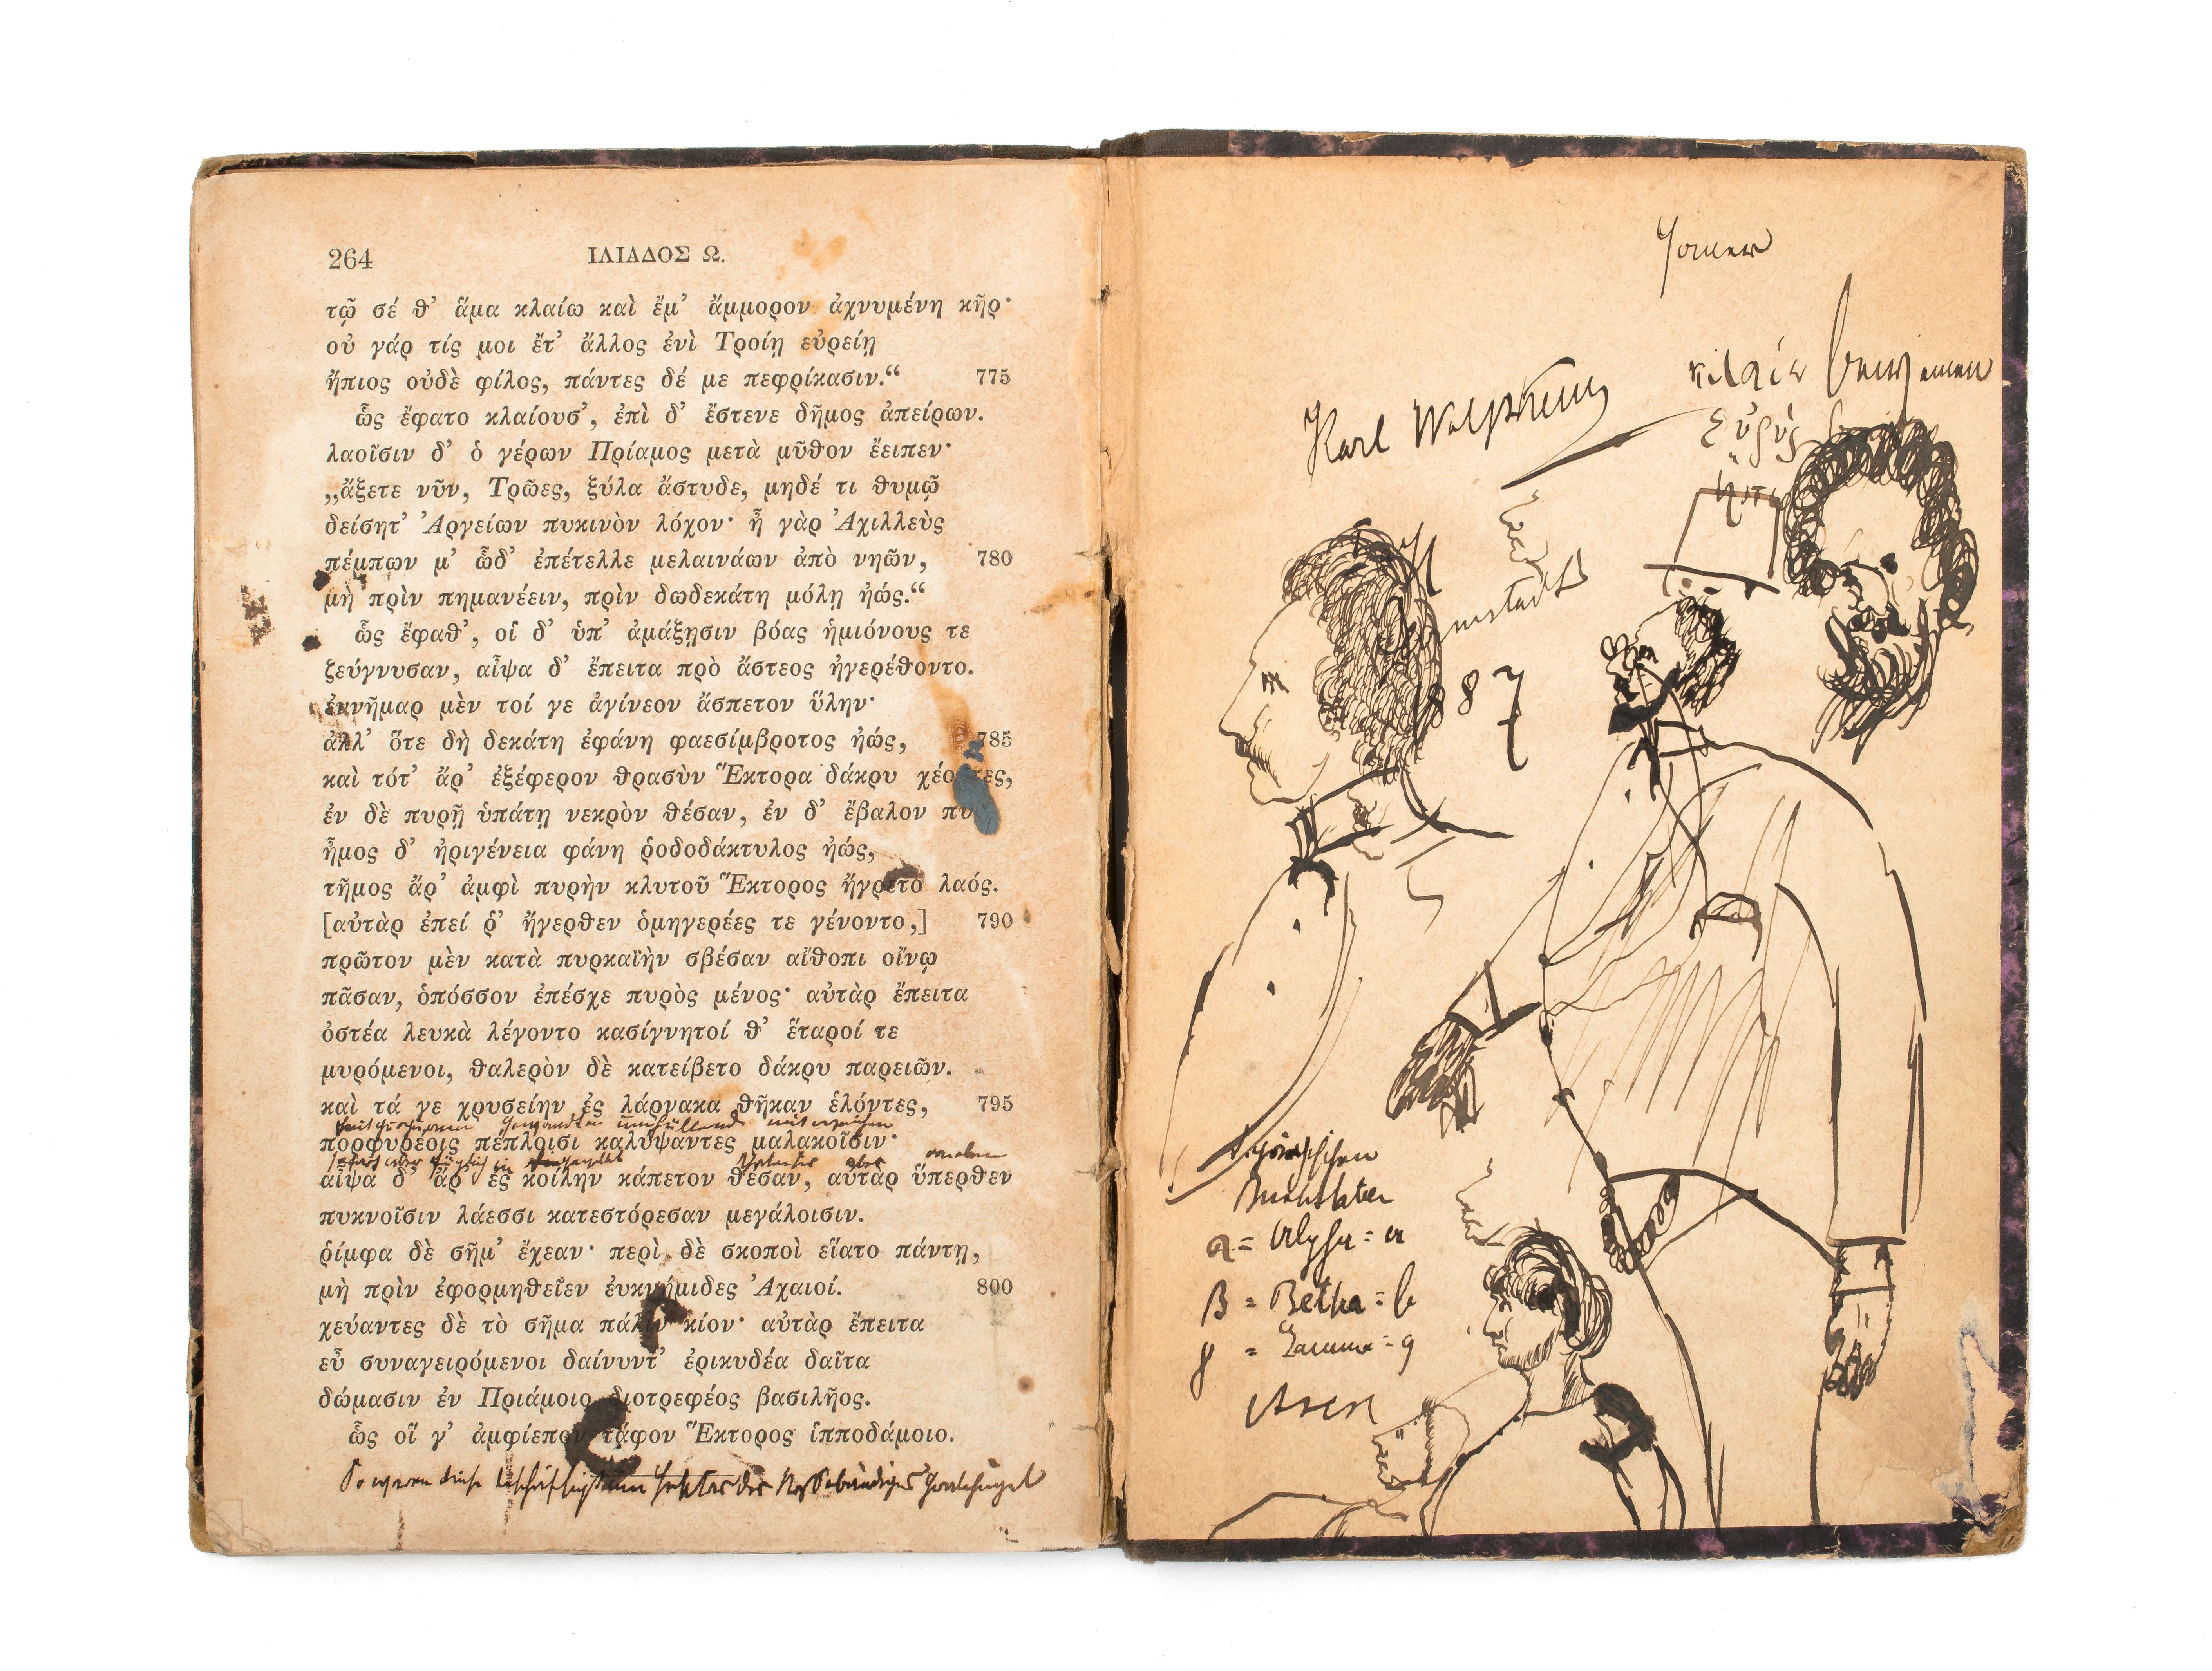 264 ΙΛΙΑΔΟΣ Ω.
τῷ σέ θ’ ἅμα κλαίω καὶ ἔμ’ ἄμμορον ἀχνυμένη κῆρ·
οὐ γάρ τίς μοι ἔτ’ ἄλλος ἐνὶ Τροίῃ εὐρείῃ
ἤπιος οὐδὲ φίλος, πάντες δέ με πεφρίκασιν.“ 775
ὣς ἔφατο κλαίουσ’, ἐπὶ δ’ ἔστενε δῆμος ἀπείρων.
λαοῖσιν δ’ ὁ γέρων Πρίαμος μετὰ μῦθον ἔειπεν·
„ἄξετε νῦν, Τρῶες, ξύλα ἄστυδε, μηδέ τι θυμῷ
δείσητ’ Ἀργείων πυκινὸν λόχον· ἦ γὰρ Ἀχιλλεὺς
πέμπων μ’ ὧδ’ ἐπέτελλε μελαινάων ἀπὸ νηῶν, 780
μὴ πρὶν πημανέειν, πρὶν δωδεκάτη μόλῃ ἠώς.“
ὣς ἔφαθ’, οἱ δ’ ὑπ’ ἀμάξῃσιν βόας ἡμιόνους τε
ζεύγνυσαν, αἶψα δ’ ἔπειτα πρὸ ἄστεος ἠγερέθοντο.
ἐννῆμαρ μὲν τοί γε ἀγίνεον ἄσπετον ὕλην·
ἀλλ’ ὅτε δὴ δεκάτη ἐφάνη φαεσίμβροτος ἠώς, 785
καὶ τότ’ ἄρ’ ἐξέφερον θρασὺν Ἕκτορα δάκρυ χέοντες,
ἐν δὲ πυρῇ ὑπάτῃ νεκρὸν θέσαν, ἐν δ’ ἔβαλον πῦ
ἦμος δ’ ἠριγένεια φάνη ῥοδοδάκτυλος ἠώς,
τῆμος ἄρ’ ἀμφὶ πυρὴν κλυτοῦ Ἕκτορος ἤγρετο λαός.
[αὐτὰρ ἐπεί ῥ’ ἤγερθεν ὁμηγερέες τε γένοντο,] 790
πρῶτον μὲν κατὰ πυρκαϊὴν σβέσαν αἴθοπι οἴνῳ
πᾶσαν, ὁπόσσον ἐπέσχε πυρὸς μένος· αὐτὰρ ἔπειτα
ὀστέα λευκὰ λέγοντο κασίγνητοί θ’ ἕταροί τε
μυρόμενοι, θαλερὸν δὲ κατείβετο δάκρυ παρειῶν.
καὶ τά γε χρυσείην ἐς λάρνακα θῆκαν ἑλόντες, 795
πορφυρέοις πέπλοισι καλύψαντες μαλακοῖσιν·
αἶψα δ’ ἄρ’ ἐς κοίλην κάπετον θέσαν, αὐτὰρ ὕπερθεν
πυκνοῖσιν λάεσσι κατεστόρεσαν μεγάλοισιν.
ῥίμφα δὲ σῆμ’ ἔχεαν· περὶ δὲ σκοποὶ εἵατο πάντῃ,
μὴ πρὶν ἐφορμηθεῖεν ἐυκνήμιδες Ἀχαιοί. 800
χεύαντες δὲ τὸ σῆμα πάλιν κίον· αὐτὰρ ἔπειτα
εὖ συναγειρόμενοι δαίνυντ’ ἐρικυδέα δαῖτα
δώμασιν ἐν Πριάμοιο διοτρεφέος βασιλῆος.
ὣς οἵ γ’ ἀμφίεπον τάφον Ἕκτορος ἱπποδάμοιο.
Karl
187
α = Alpha = a
β = Betha = b
γ = Gamma = g